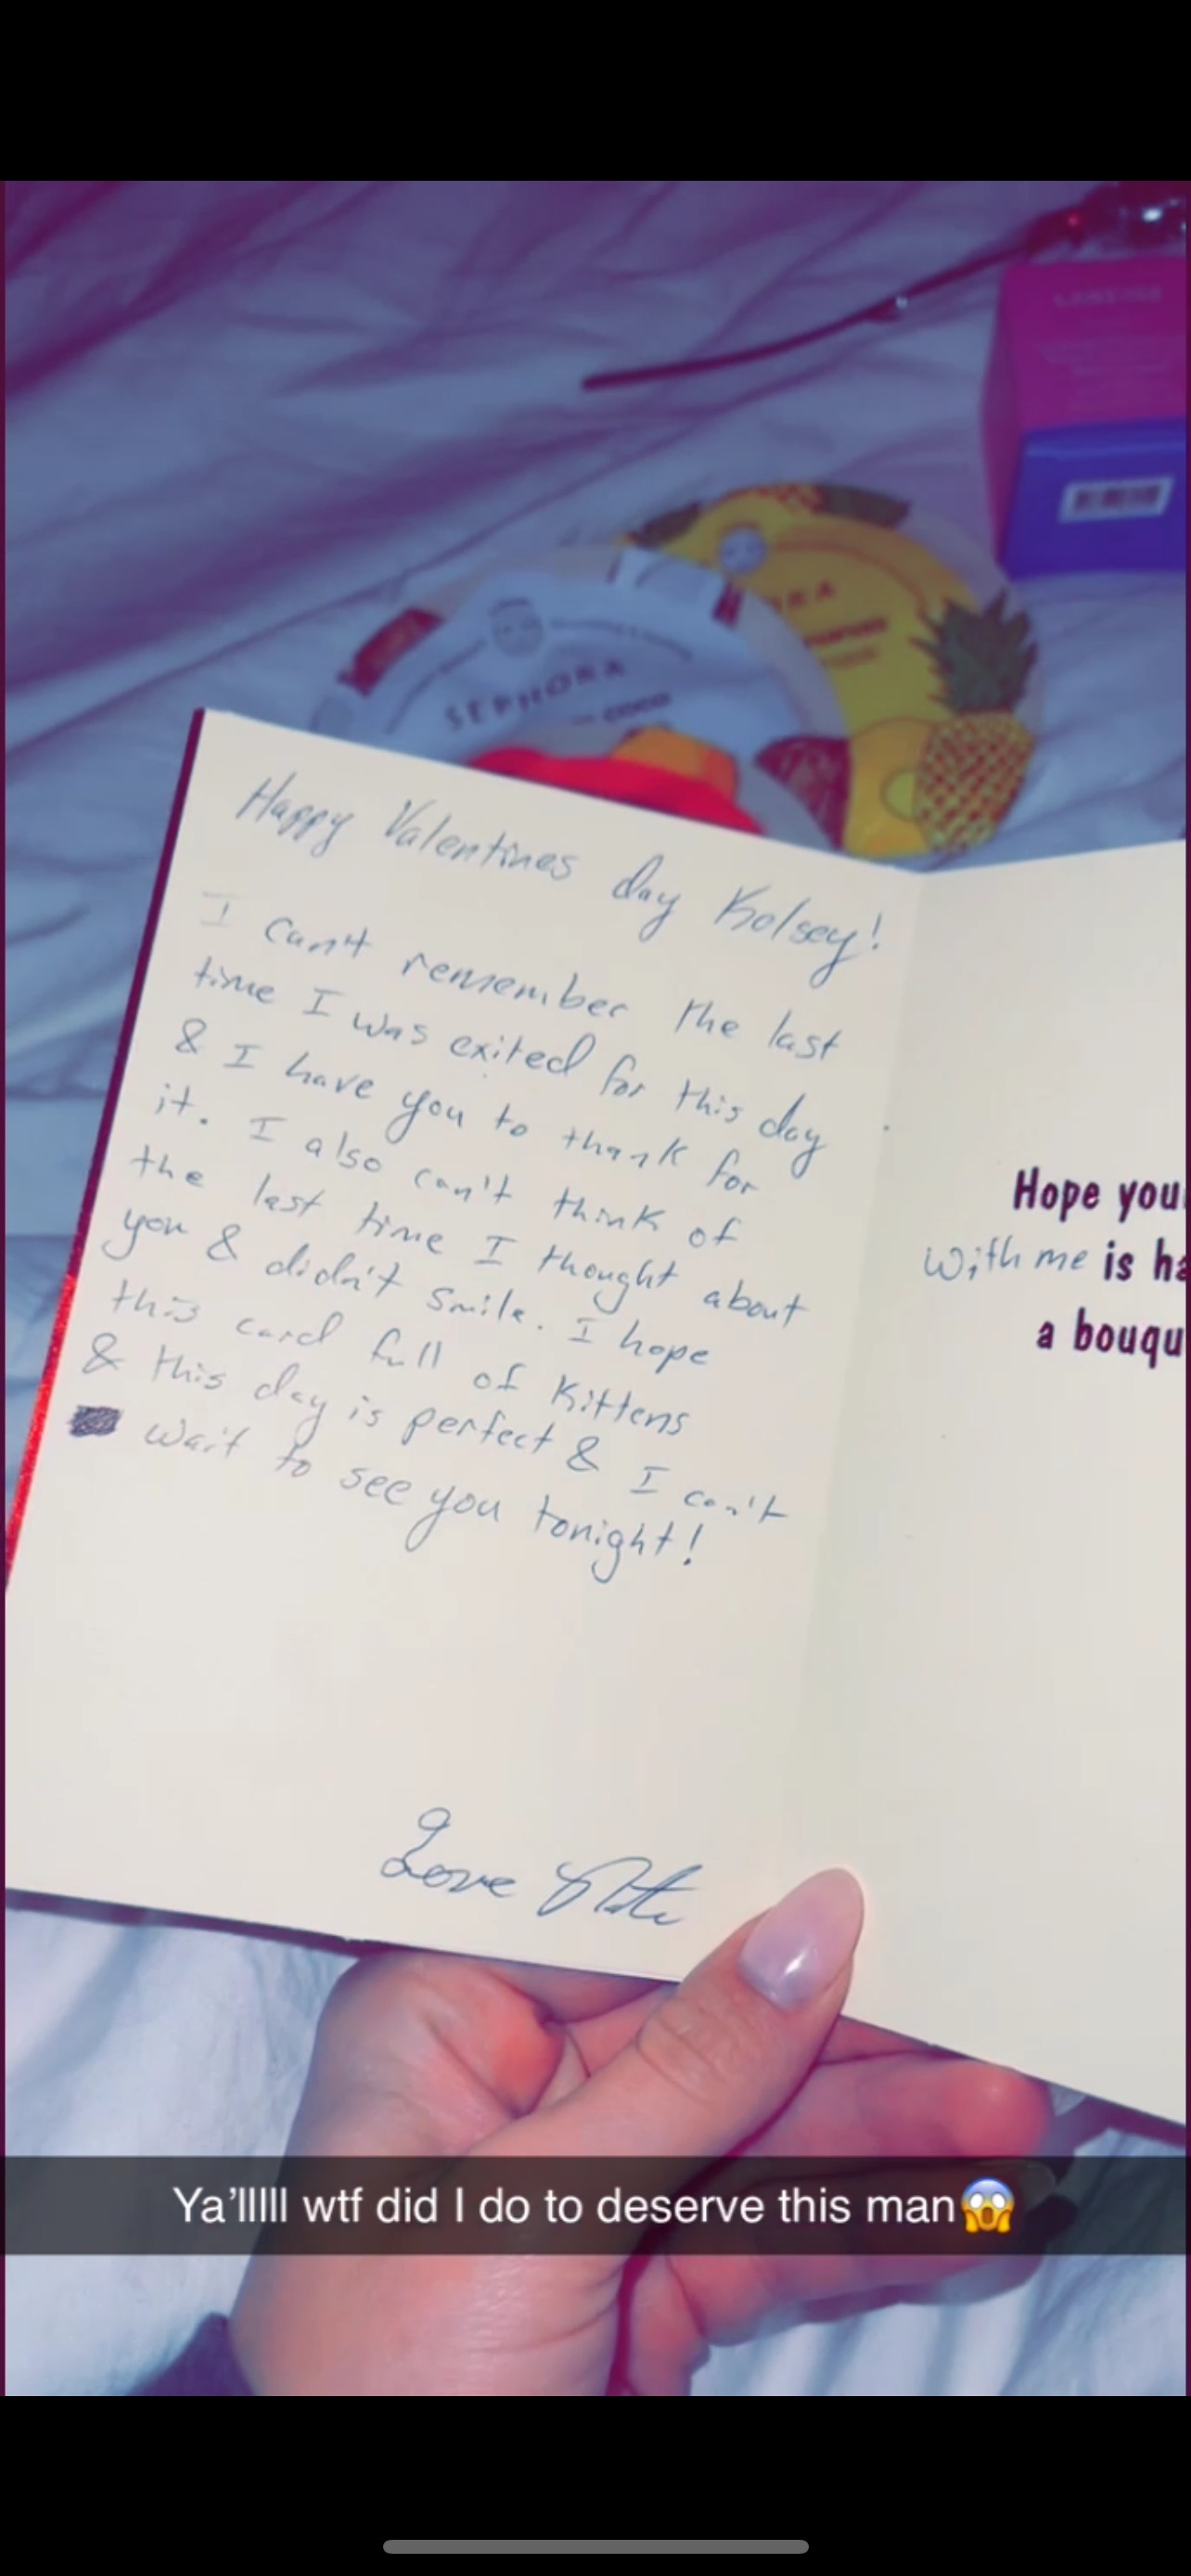 SEPHORA
COCO
Happy Valentines day Kolsey!
I can't remember the last
time I was exited for this day
& I have you to thank for
it. I also can't think of
the last time I thought about
you & didn't smile. I hope
this card full of kittens
& this day is perfect & I can't
wait to see you tonight!
Love Nate
Hope you
with me is ha
a bouqu
Ya'lllll wtf did I do to deserve this man😱